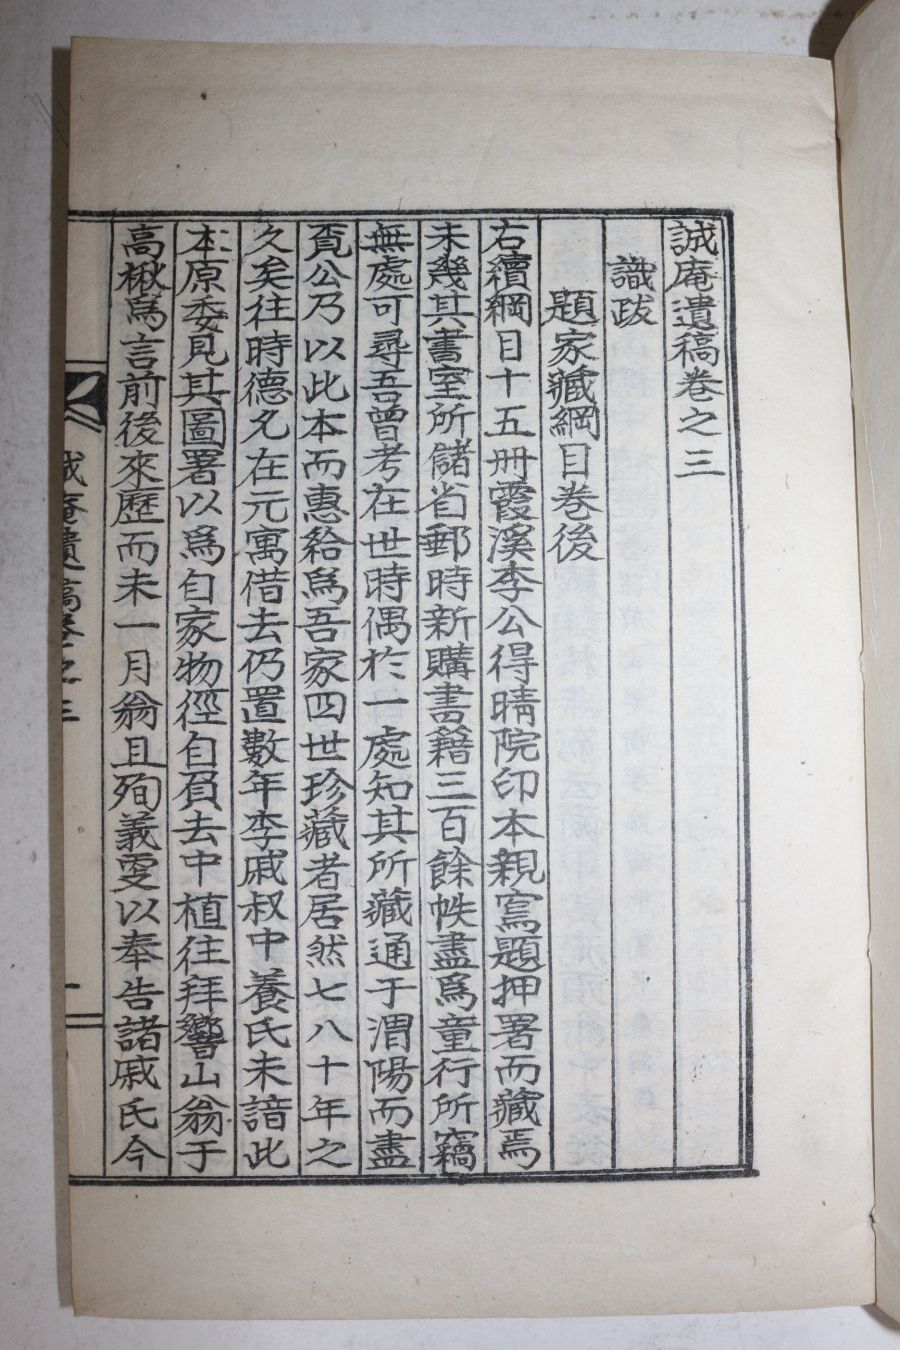 誠庵遺稿卷之三
識跋
題家藏綱目卷後
右續綱目十五冊霞溪李公得晴院印本親寫題押署而藏焉
未幾其書室所儲省郵時新購書籍三百餘帙盡爲童行所竊
無處可尋吾曾考在世時偶於一處知其所藏通于渭陽而盡
覔公乃以此本而惠給爲吾家四世珍藏者居然七八十年之
久矣往時德允在元寓借去仍置數年李戚叔中養氏未諳此
本原委見其圖署以爲自家物徑自負去中植往拜響山翁于
高楸爲言前後來歷而未一月翁且殉義雯以奉告諸戚氏今
誠庵遺稿卷之三 一